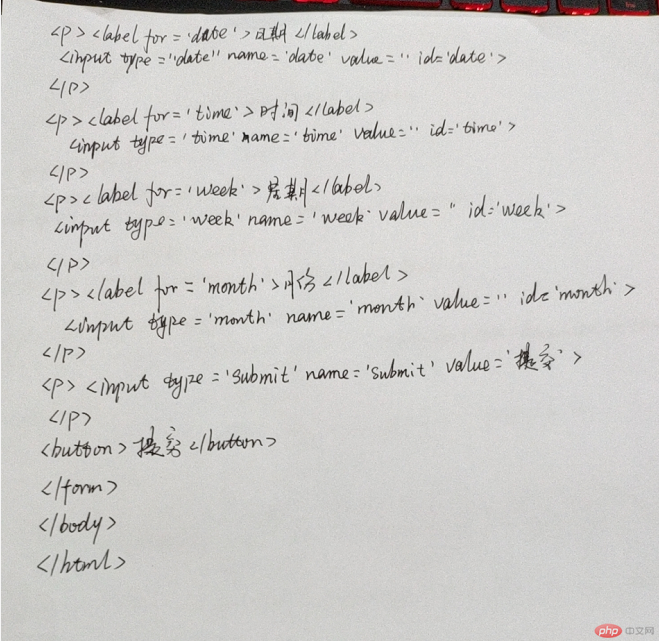 <p><label for='date'>日期</label>
<input type="date" name='date' value='' id='date'>
</p>
<p><label for='time'>时间</label>
<input type='time' name='time' value='' id='time'>
</p>
<p><label for='week'>星期</label>
<input type='week' name='week' value='' id='week'>
</p>
<p><label for='month'>月份</label>
<input type='month' name='month' value='' id='month'>
</p>
<p><input type='submit' name='submit' value='提交'>
</p>
<button>提交</button>
</form>
</body>
</html>
php 中文网